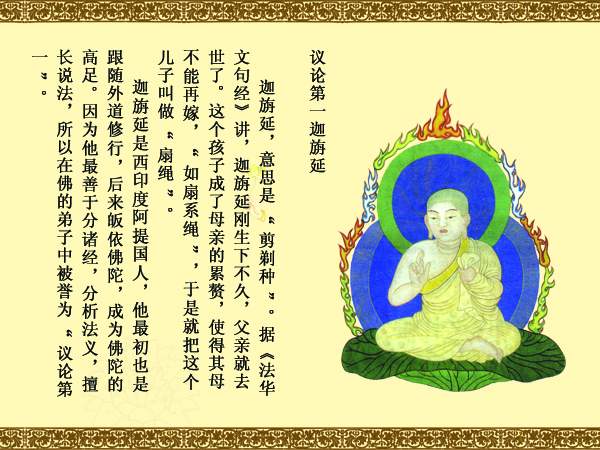 议论第一迦旃延
迦旃延，意思是“剪剃种”。据《法华
文句经》讲，迦旃延刚生下不久，父亲就去
世了。这个孩子成了母亲的累赘，使得其母
不能再嫁，“如扇系绳”，于是就把这个
儿子叫做“扇绳”。
迦旃延是西印度阿提国人，他最初也是
跟随外道修行，后来皈依佛陀，成为佛陀的
高足。因为他最善于分诸经，分析法义，擅
长说法，所以在佛的弟子中被誉为“议论第
一”。